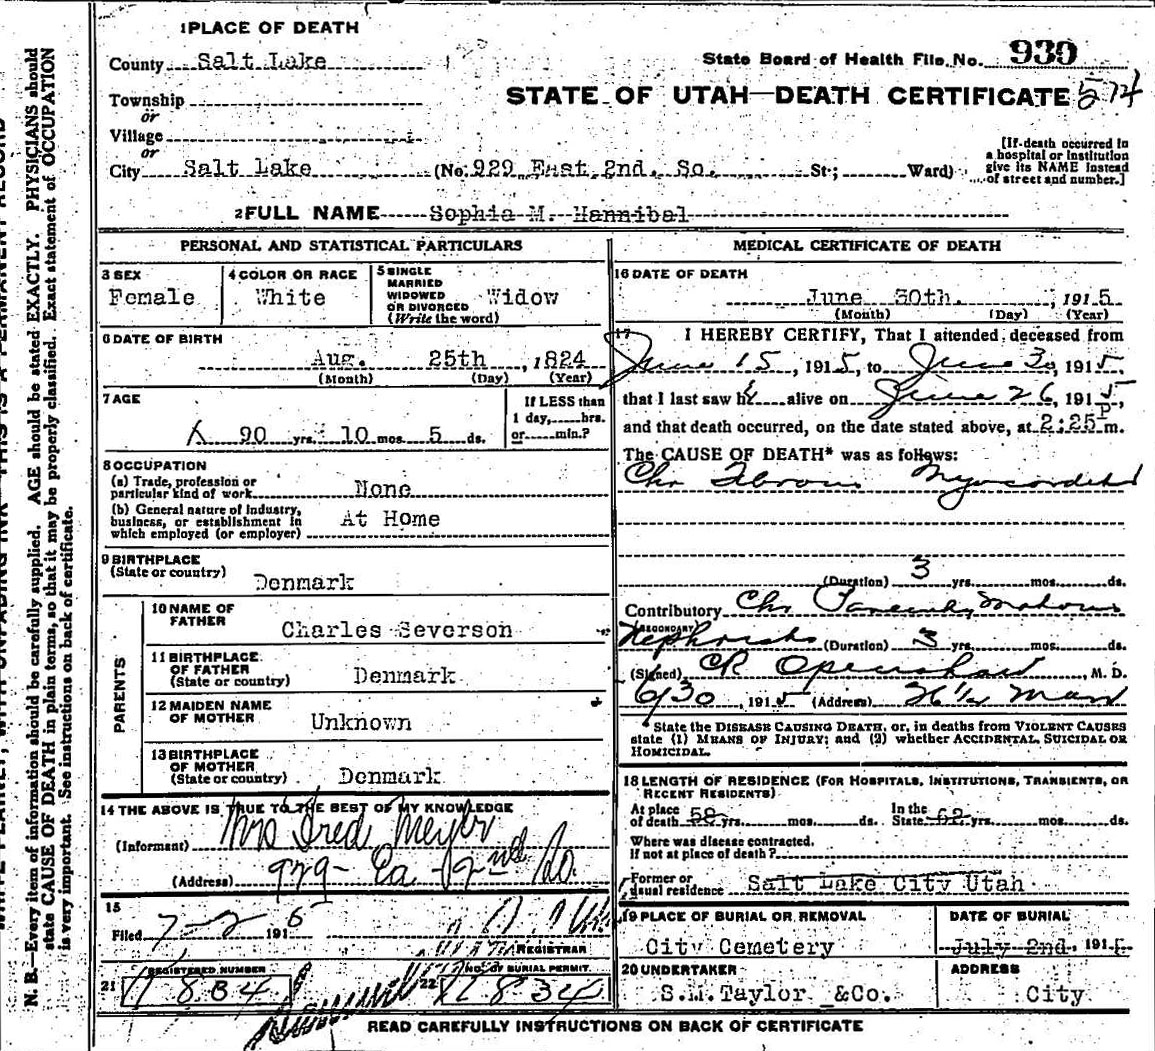 1 PLACE OF DEATH
County Salt Lake
State Board of Health File No. 939
Township
or
STATE OF UTAH—DEATH CERTIFICATE 574
Village
or
City Salt Lake (No. 929 East 2nd. So. St.; Ward)
[If death occurred in a hospital or institution give its NAME instead of street and number.]
2 FULL NAME Sophia M. Hannibal
PERSONAL AND STATISTICAL PARTICULARS
3 SEX Female
4 COLOR OR RACE White
5 SINGLE MARRIED WIDOWED OR DIVORCED (Write the word) Widow
6 DATE OF BIRTH
Aug. 25th , 1824
(Month) (Day) (Year)
7 AGE
90 yrs. 10 mos. 5 ds.
If LESS than 1 day, hrs. or min.?
8 OCCUPATION
(a) Trade, profession or particular kind of work None
(b) General nature of industry, business, or establishment in which employed (or employer) At Home
9 BIRTHPLACE
(State or country) Denmark
PARENTS
10 NAME OF FATHER Charles Severson
11 BIRTHPLACE OF FATHER (State or country) Denmark
12 MAIDEN NAME OF MOTHER Unknown
13 BIRTHPLACE OF MOTHER (State or country) Denmark
14 THE ABOVE IS TRUE TO THE BEST OF MY KNOWLEDGE
(Informant) Mrs Fred Meyer
(Address) 929- Ea -2nd So.
15
Filed 7-2 1915
REGISTRAR
REGISTERED NUMBER
21
NO. OF BURIAL PERMIT
22
MEDICAL CERTIFICATE OF DEATH
16 DATE OF DEATH
June 30th. , 1915
(Month) (Day) (Year)
17 I HEREBY CERTIFY, That I attended deceased from
June 15, 1915, to June 30, 1915,
that I last saw h alive on June 26, 1915,
and that death occurred, on the date stated above, at 2:25 P m.
The CAUSE OF DEATH* was as follows:
Chr Fibrous Myocarditis
(Duration) 3 yrs. mos. ds.
Contributory Chr Parenchymatous
(SECONDARY)
Nephritis (Duration) 3 yrs. mos. ds.
(Signed) CR Openshaw, M. D.
6/30, 1915 (Address) Main
* State the DISEASE CAUSING DEATH, or, in deaths from VIOLENT CAUSES state (1) MEANS OF INJURY; and (2) whether ACCIDENTAL, SUICIDAL OR HOMICIDAL.
18 LENGTH OF RESIDENCE (FOR HOSPITALS, INSTITUTIONS, TRANSIENTS, OR RECENT RESIDENTS)
At place of death 58 yrs. mos. ds. In the State 62 yrs. mos. ds.
Where was disease contracted, if not at place of death?
Former or usual residence Salt Lake City Utah
19 PLACE OF BURIAL OR REMOVAL
City Cemetery
DATE OF BURIAL
July 2nd. 191
20 UNDERTAKER
S.M. Taylor &Co.
ADDRESS
City
READ CAREFULLY INSTRUCTIONS ON BACK OF CERTIFICATE
N. B.—Every item of information should be carefully supplied. AGE should be stated EXACTLY. PHYSICIANS should
state CAUSE OF DEATH in plain terms, so that it may be properly classified. Exact statement of OCCUPATION
is very important. See instructions on back of certificate.